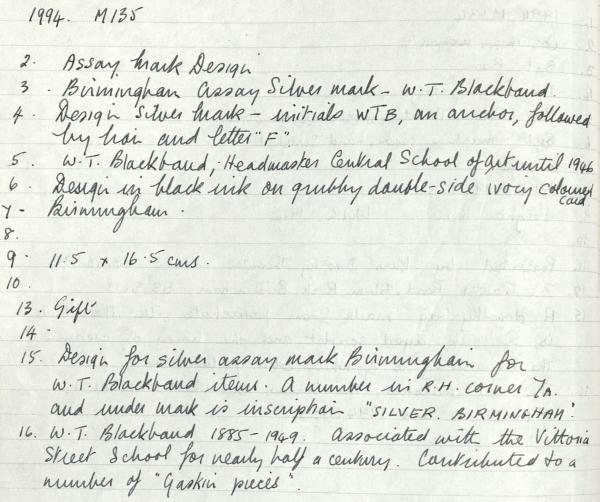 1994. M135
2. Assay Mark Design
3. Birmingham Assay Silver mark - W.T. Blackband.
4. Design Silver Mark - initials WTB, an anchor, followed
by lion and letter "F".
5. W.T. Blackband, Headmaster Central School of Art until 1946
6. Design in black ink on grubby double-side ivory coloured
card
7. Birmingham.
8.
9. 11.5 x 16.5 cms.
10.
13. Gift
14.
15. Design for silver assay mark Birmingham for
W.T. Blackband items. A number in R.H. corner 7A.
and under mark is inscription "SILVER. BIRMINGHAM".
16. W.T. Blackband 1885-1949. Associated with the Vittoria
Street School for nearly half a century. Contributed to a
number of "Gaskin pieces".